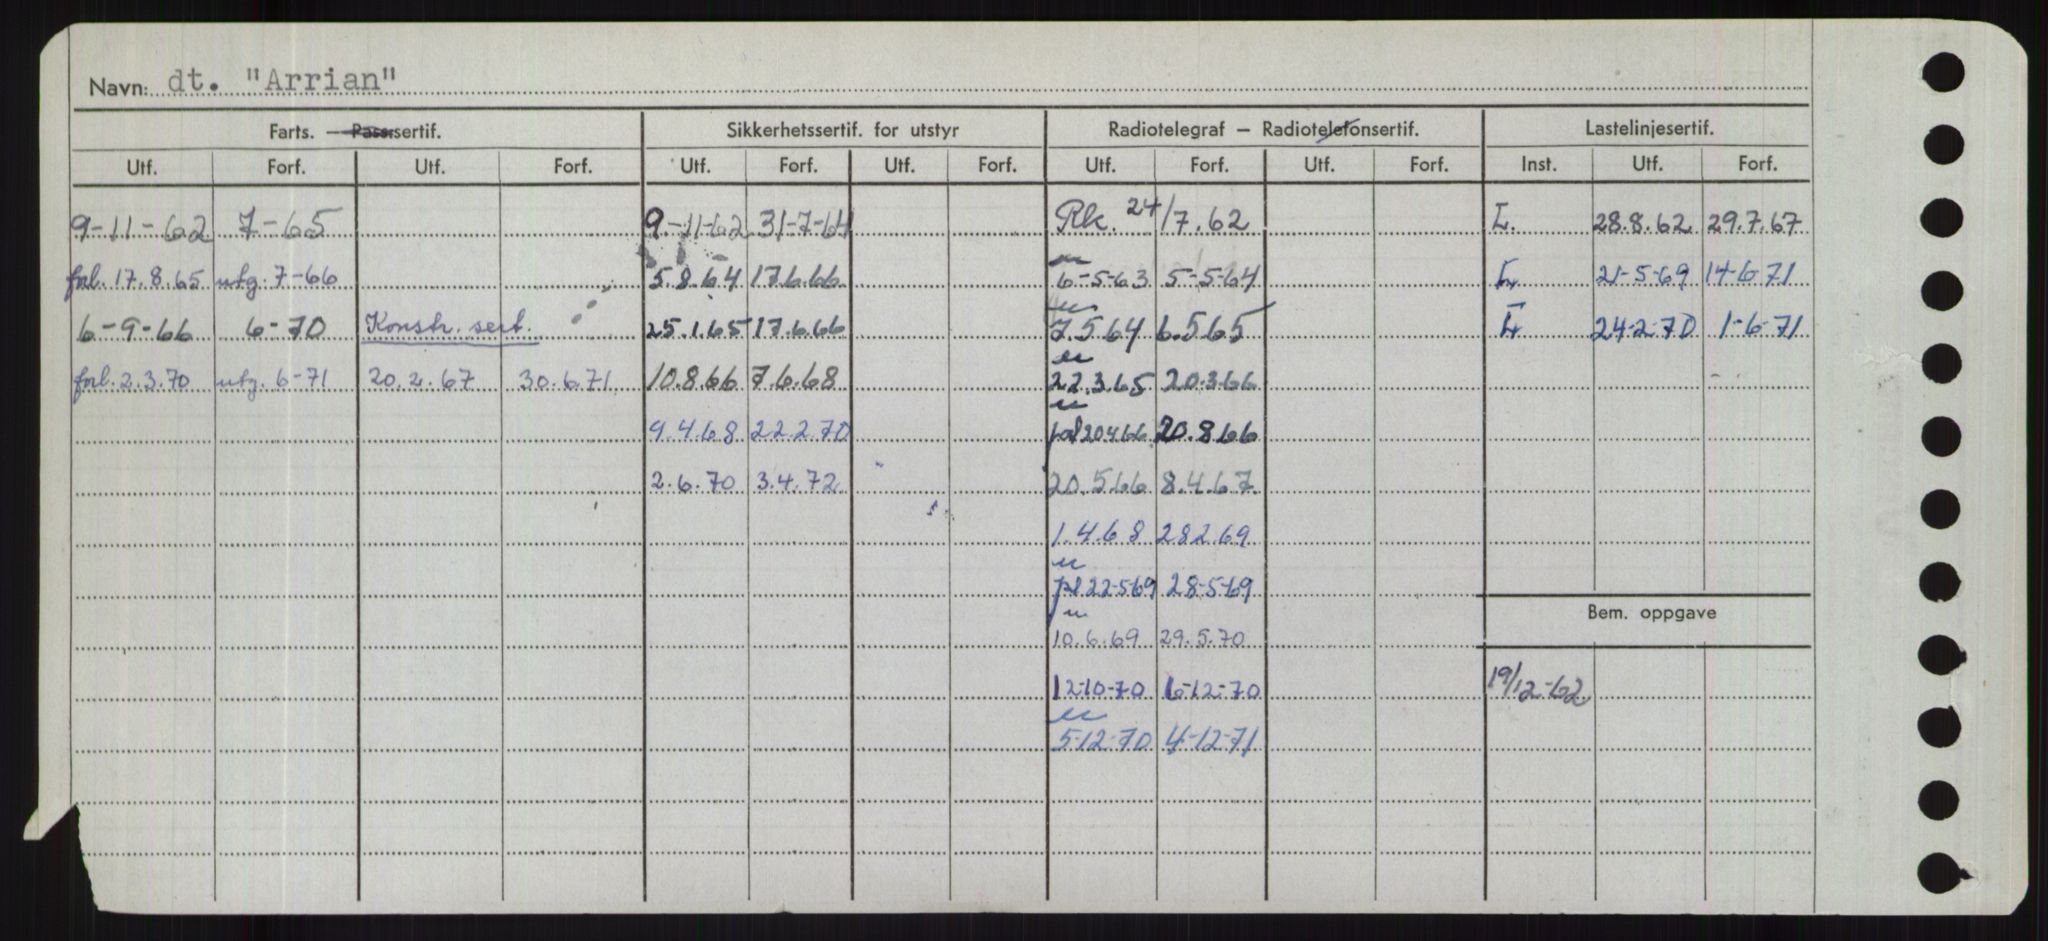 Navn: dt. "Arrian"
Farts. — Pass.sertif. Sikkerhetssertif. for utstyr Radiotelegraf — Radiotelefonsertif. Lastelinjesertif.
Utf. Forf. Utf. Forf. Utf. Forf. Utf. Forf. Utf. Forf. Utf. Forf. Inst. Utf. Forf.
9-11-62 7-65 9-11-62 31-7-64 Rk. 24/7.62 Ł. 28.8.62 29.7.67
forl. 17.8.65 utg. 7-66 5.8.64 17.6.66 6-5-63 5-5-64 Ł 21-5-69 14-6-71
6-9-66 6-70 Konstr. sert. 25.1.65 17.6.66 7.5.64 6.5.65 Ł 24-2-70 1-6-71
forl. 2.3.70 utg. 6-71 20.2.67 30.6.71 10.8.66 7.6.68 22.3.65 20.3.66
9.4.68 22.2.70 20.4.66 20.8.66
2.6.70 3.4.72 20.5.66 8.4.67
1.4.68 28.2.69
22-5-69 28-5-69
Bem. oppgave
10.6.69 29.5.70
12-10-70 6-12-70 19/12-62
5-12-70 4-12-71